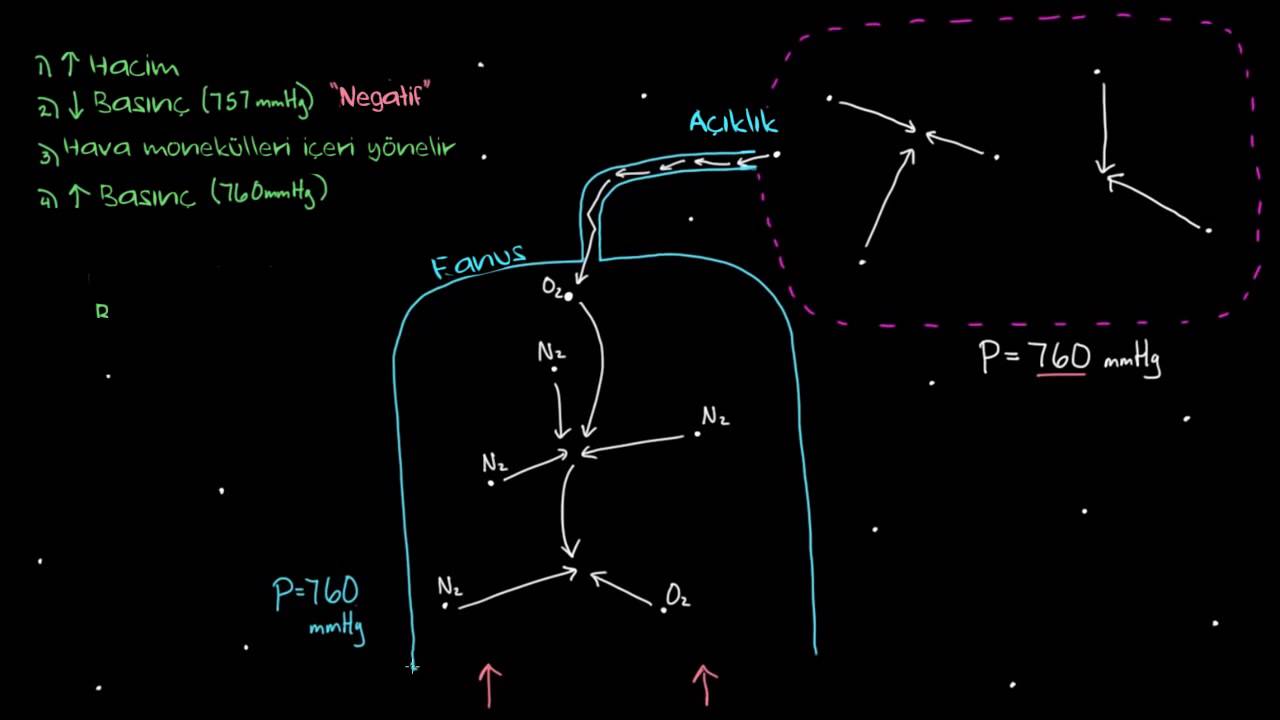 1) ↑ Hacim
2) ↓ Basınç (757 mmHg) "Negatif"
3) Hava monekülleri içeri yönelir
4) ↑ Basınç (760mmHg)
B
Açıklık
Fanus
O₂
N₂
N₂
N₂
N₂
O₂
P=760
mmHg
P= 760 mmHg